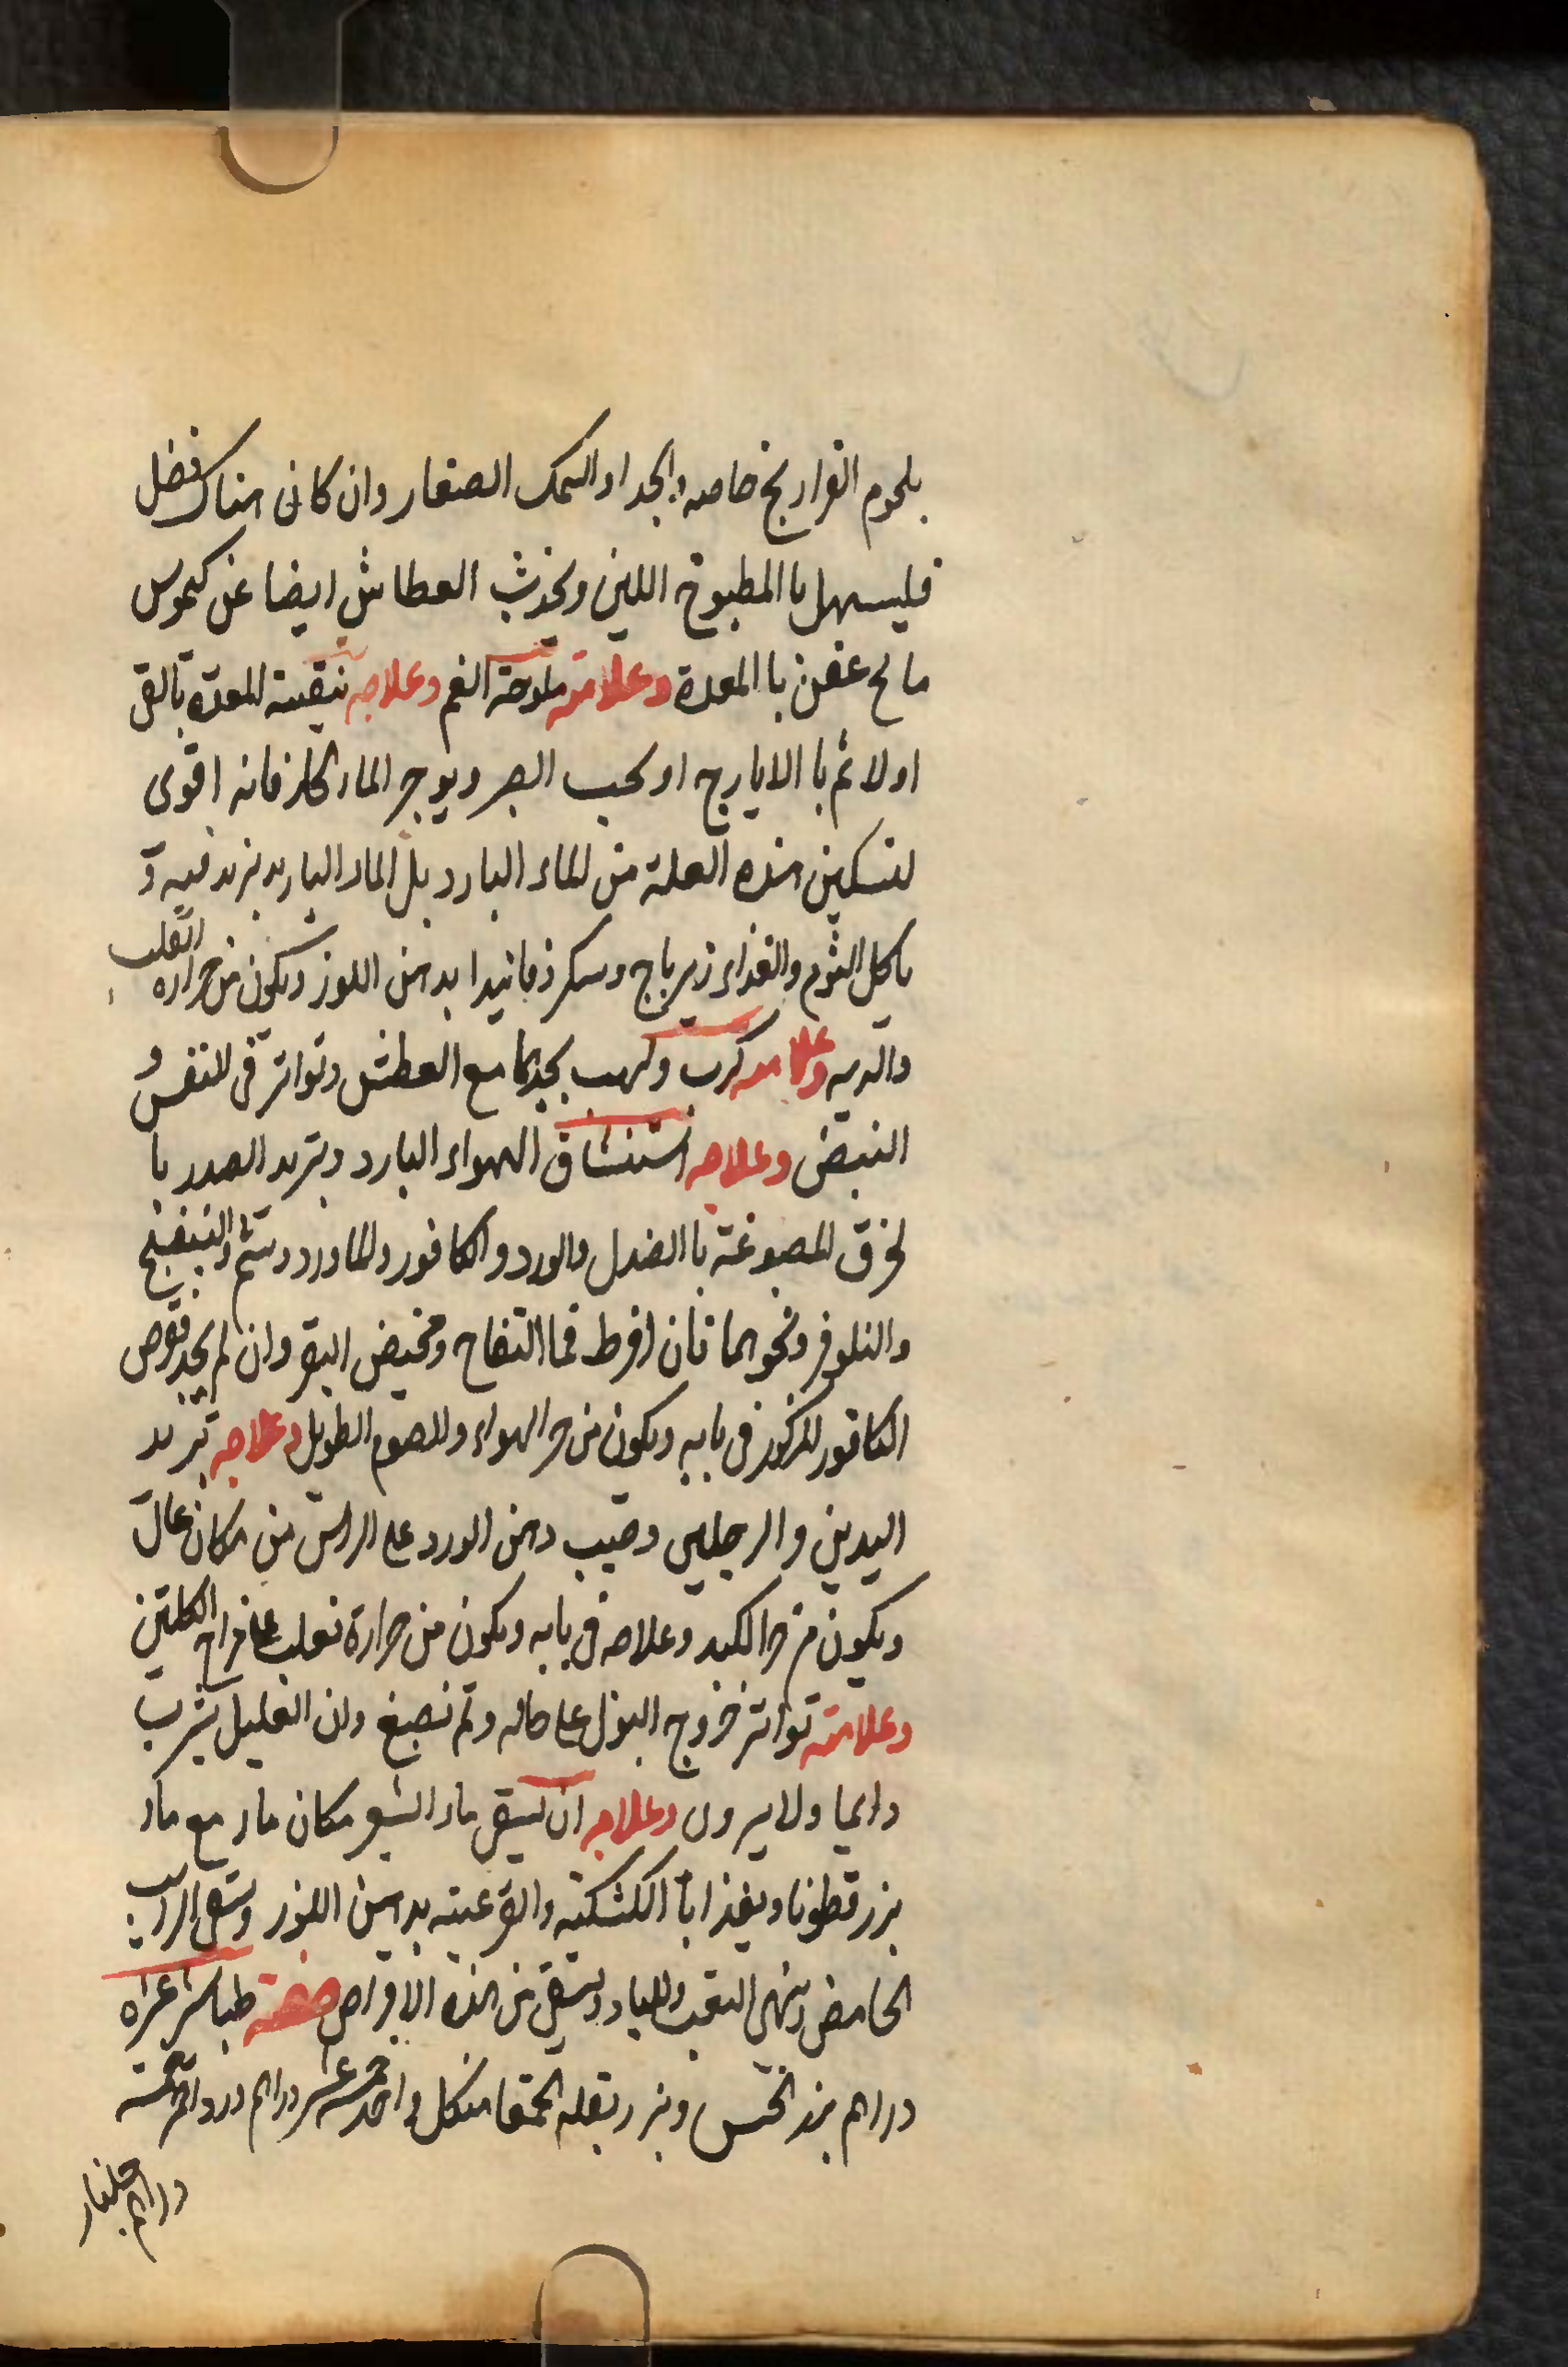 بلحوم الفراريج خاصه والجدا والسمك الصغار وان كان هناك فضل
فليسهل با المطبوخ اللين ويحدث العطاش ايضا عن كيموس
مالح عفن با المعدة وعلامته ملوحة الفم وعلاجه تنقية المعدة بالقى
اولا ثم با الايارج او بحب الصبر ويوجر الماء الحار فانه اقوى
لتسكين هذه العلة من الماء البارد بل الماء البارد يزيد فيه و
ياكل الثوم والغذاء زيرباج وسكر فانيدا بدهن اللوز ويكون من حرارة القلب
والريه وعلامته كرب ولهب يجدها مع العطش وتواتر فى النفس و
النبض وعلاجه استنشاق الهواء البارد وتبريد الصدر با
لخرق المصبوغة با الصندل والورد والكافور والماورد وشم البنفسج
والنلوفر ونحوهما فان افرط فما التفاح ومخيض البقر وان لم يجد فقرص
الكافور المذكور فى بابه ويكون من حر الهواء والصوم الطويل وعلاجه تبريد
اليدين والرجلين وصيب دهن الورد على الراس من مكان عال
ويكون من حر الكبد وعلاجه فى بابه ويكون من حرارة تغلب على مزاج الكلتين
وعلامته تواتر خروج البول على حاله ولم نصبغ وان العليل يشرب
دايما ولا يروى وعلاجه ان يسقى ماء الشعير مكان ماء مع ماء
بزر قطونا ويغذا با الكشكية والقرعية بدهن اللوز ويسقى الرايب
الحامض وينهى التعب والجماع ويسقى من هذه الاقراص صفته طباشير عشره
دراهم بزر الخس وبزر بقلة الحمقا من كل واحد خمسة عشر دراهم ورد احمر خمسه
دراهم جلنار